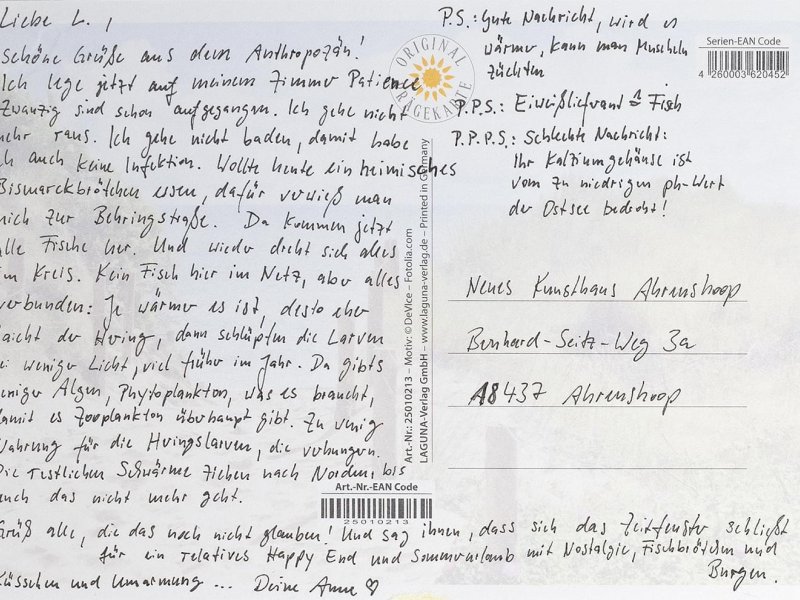 Liebe L.,
Schöne Grüße aus dem Anthropozän!
Ich lege jetzt auf meinem Zimmer Patience
Zwanzig sind schon aufgegangen. Ich gehe nicht
mehr raus. Ich gehe nicht baden, damit habe
ich auch keine Infektion. Wollte heute ein heimisches
Bismarckbrötchen essen, dafür verwieß man
mich zur Behringstraße. Da kommen jetzt
alle Fische her. Und wieder dreht sich alles
im Kreis. Kein Fisch hier im Netz, aber alles
verbunden: Je wärmer es ist, desto eher
laicht der Hering, dann schlüpfen die Larven
bei weniger Licht, viel früher im Jahr. Da gibts
weniger Algen, Phytoplankton, was es braucht,
damit es Zooplankton überhaupt gibt. Zu wenig
Nahrung für die Heringslarven, die verhungern.
Die restlichen Schwärme ziehen nach Norden, bis
auch das nicht mehr geht.
Grüß alle, die das noch nicht glauben! Und sag ihnen, dass sich das Zeitfenster schließt
für ein relatives Happy End und Sommerurlaub mit Nostalgie, Fischbrötchen und
Burgen.
Küsschen und Umarmung ... Deine Anne ♡
P.S.: Gute Nachricht, wird es
wärmer, kann man Muscheln
züchten
P.P.S.: Eiweißlieferant ≙ Fisch
P.P.P.S.: Schlechte Nachricht:
Ihr Kalziumgehäuse ist
vom zu niedrigen ph-Wert
der Ostsee bedroht!
Neues Kunsthaus Ahrenshoop
Bernhard-Seitz-Weg 3a
18437 Ahrenshoop
ORIGINAL
Serien-EAN Code
4 260003 620452
Art.-Nr.: 25010213 – Motiv: © DeVice – Fotolia.com
LAGUNA-Verlag GmbH – www.laguna-verlag.de – Printed in Germany
Art.-Nr.-EAN Code
25010213